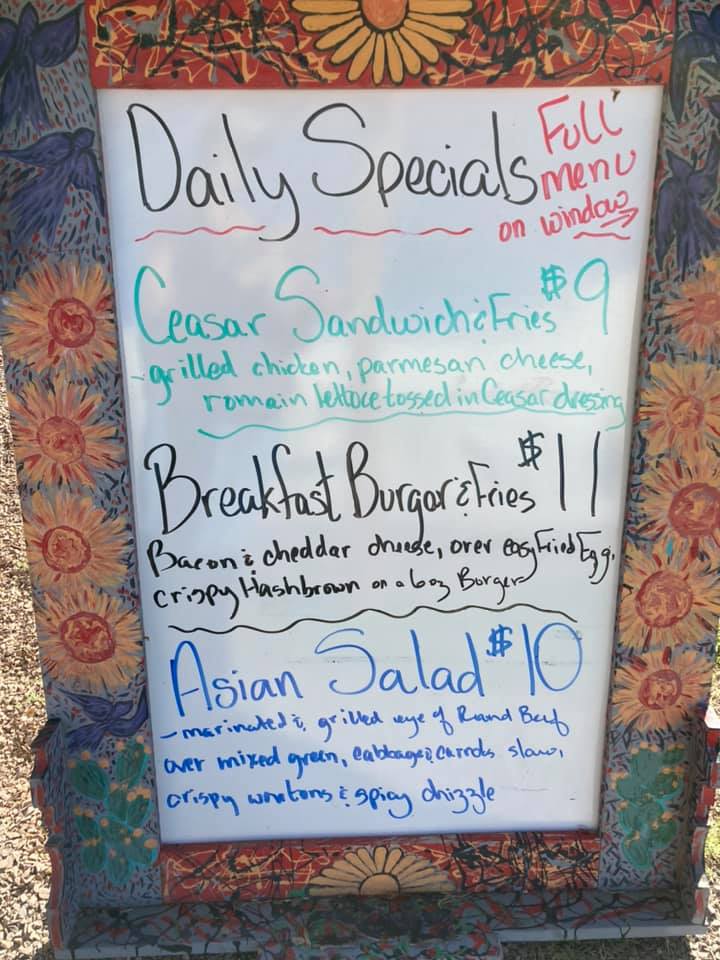 Daily Specials
Full
menu
on window
Ceasar Sandwich & Fries $9
- grilled chicken, parmesan cheese,
romain lettoce tossed in Ceasar dressing
Breakfast Burger & Fries $11
Bacon & cheddar cheese, over easy Fried Egg,
crispy Hashbrown on a 6oz Burger
Asian Salad $10
- marinated & grilled eye of Round Beef
over mixed green, cabbage & carrots slaw,
crispy wontons & spicy drizzle